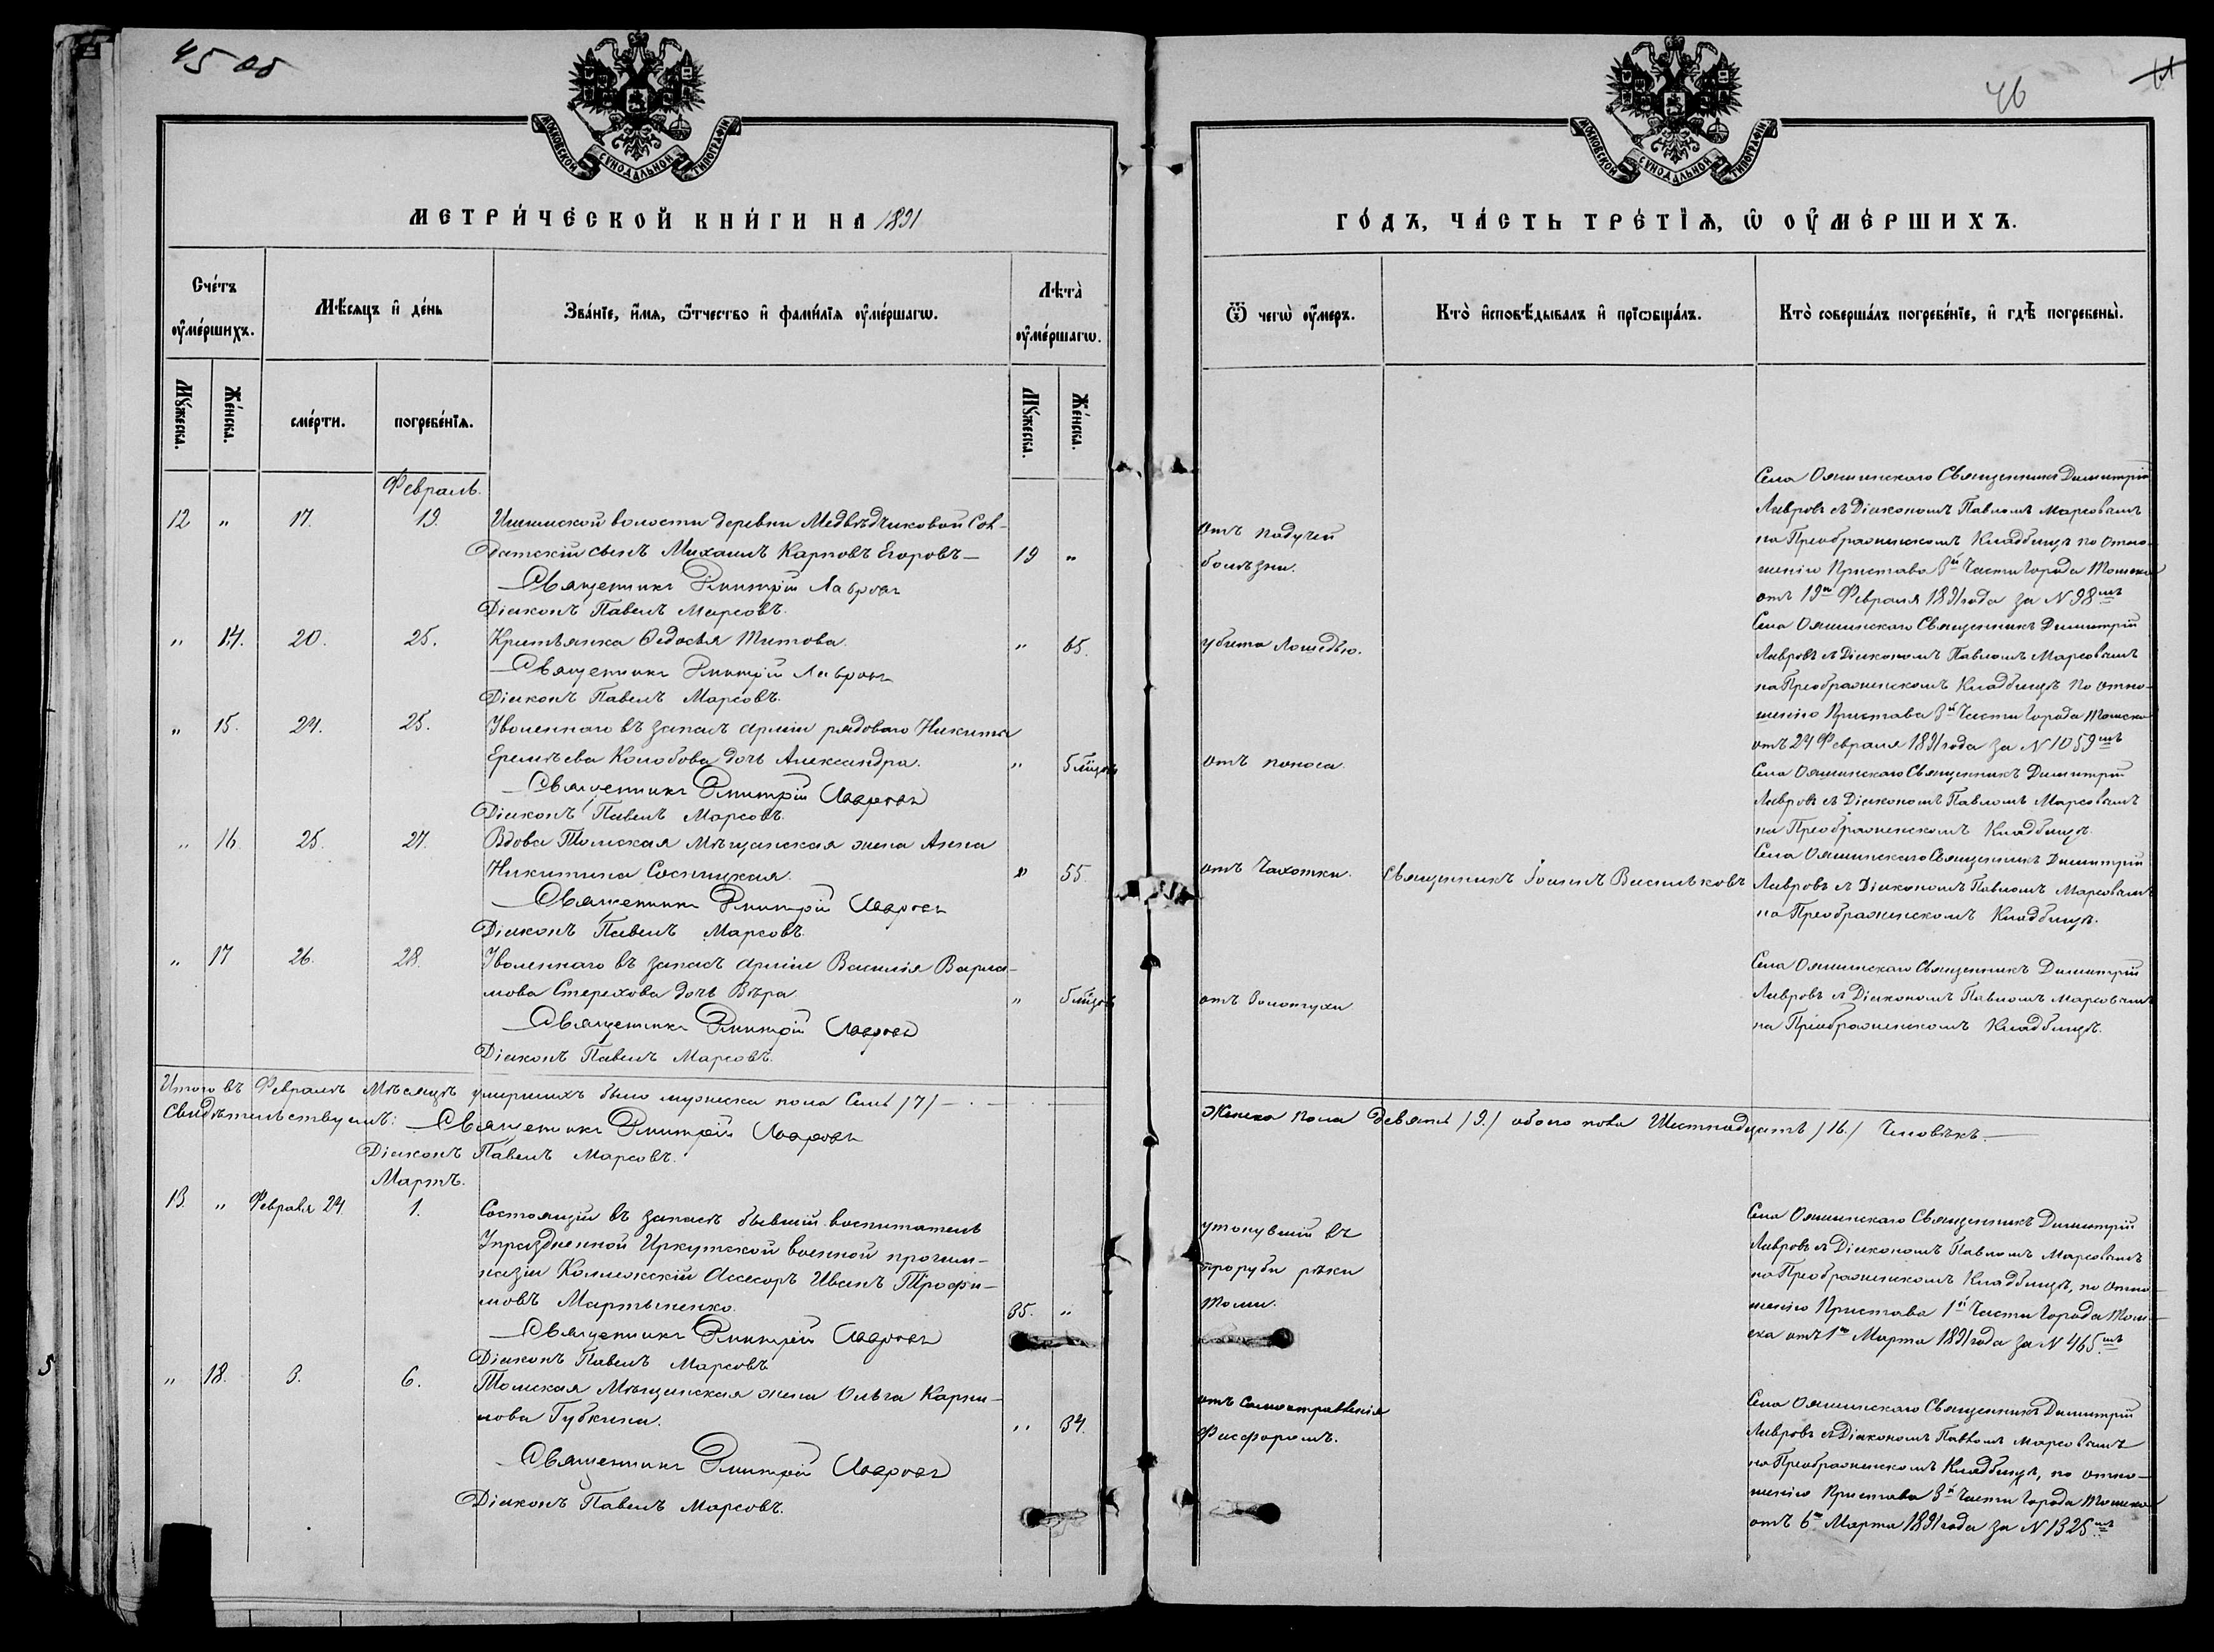 45 об
46
МОСКОВСКОЙ СУНОДАЛЬНОЙ ТИПОГРАФІИ
МОСКОВСКОЙ СУНОДАЛЬНОЙ ТИПОГРАФІИ
МЕТРИ́ЧЕСКОЙ КНИ́ГИ НА 1891
ГО́ДЪ, ЧА́СТЬ ТРЕ́ТІЯ, Ѡ ОУ҆МЕ́РШИХЪ.
Счéтъ оу҆мéршихъ.
Мѣ́сяцъ и҆ дéнь
Звáнїе, и҆́мя, ѻ҆́тчество и҆ фами́лїя оу҆мéршагѡ.
Лѣта̀ оу҆мéршагѡ.
Ѿ чегѡ̀ оу҆́меръ.
Кто̀ и҆сповѣ́дывалъ и҆ прїѡбща́лъ.
Кто̀ соверша́лъ погребéнїе, и҆ гдѣ̀ погребены̀.
Мꙋ́жеска.
Жéнска.
смéрти.
погребéнїя.
Мꙋ́жеска.
Жéнска.
Февраль.
12 " 17. 19. Ишимской волости деревни Медвѣдчиковой Сол-
датскій сынъ Михаилъ Карповъ Егоровъ— 19 "
Священникъ Димитрій Лавровъ
Діаконъ Павелъ Марсовъ.
Отъ падучей
болѣзни.
Села Ояшинскаго Священникъ Димитрій
Лавровъ съ Діакономъ Павломъ Марсовымъ
на Преображенскомъ Кладбищѣ по отно-
шенію Пристава 3й Части города Томска
отъ 19го Февраля 1891 года за N 98мъ
" 14. 20. 25. Крестьянка Ѳедосья Титова. " 65.
Священникъ Димитрій Лавровъ
Діаконъ Павелъ Марсовъ.
убита Лошадью.
Села Ояшинскаго Священникъ Димитрій
Лавровъ съ Діакономъ Павломъ Марсовымъ
на Преображенскомъ Кладбищѣ по отно-
шенію Пристава 3й Части города Томска
отъ 24 Февраля 1891 года за N 1059мъ
" 15. 24. 25. Уволеннаго въ запасъ арміи рядоваго Никиты
Еремѣева Колобова дочь Александра. "
Священникъ Димитрій Лавровъ
Діаконъ Павелъ Марсовъ.
отъ поноса.
Села Ояшинскаго Священникъ Димитрій
Лавровъ съ Діакономъ Павломъ Марсовымъ
на Преображенскомъ Кладбищѣ.
" 16. 25. 27. Вдова Томская мѣщанская жена Анна
Никитина Сосницкая. " 55.
Священникъ Димитрій Лавровъ
Діаконъ Павелъ Марсовъ.
отъ Чахотки. Священникъ Іоаннъ Васильковъ
Села Ояшинскаго Священникъ Димитрій
Лавровъ съ Діакономъ Павломъ Марсовымъ
на Преображенскомъ Кладбищѣ.
" 17 26. 28. Уволеннаго въ запасъ арміи Василія Варла-
мова Стерехова дочь Вѣра. "
Священникъ Димитрій Лавровъ
Діаконъ Павелъ Марсовъ.
отъ Золотухи
Села Ояшинскаго Священникъ Димитрій
Лавровъ съ Діакономъ Павломъ Марсовымъ
на Преображенскомъ Кладбищѣ.
Итого въ Февралѣ Мѣсяцѣ умершихъ было мужеска пола Семь /7/ —
Женска пола Девять /9./ обоего пола Шестнадцать /16./ Человѣкъ.—
Свидѣтельствуемъ: Священникъ Димитрій Лавровъ
Діаконъ Павелъ Марсовъ.
Мартъ.
13. " Февраля 24. 1. Состоящій въ запасѣ бывшій воспитатель
Упраздненной Иркутской военной прогим-
назіи Коллежскій Ассесоръ Иванъ Трофи-
мовъ Мартыненко. 35. "
Священникъ Димитрій Лавровъ
Діаконъ Павелъ Марсовъ
утонувшій въ
проруби рѣки
Томи.
Села Ояшинскаго Священникъ Димитрій
Лавровъ съ Діакономъ Павломъ Марсовымъ
на Преображенскомъ Кладбищѣ, по отно-
шенію Пристава 1й Части города Том-
ска отъ 1го Марта 1891 года за N 465.мъ
" 18. 3. 6. Томская Мѣщанская жена Ольга Карпи-
нова Губкина. " 34.
Священникъ Димитрій Лавровъ
Діаконъ Павелъ Марсовъ.
отъ самоотравленія
Фосфоромъ.
Села Ояшинскаго Священникъ Димитрій
Лавровъ съ Діакономъ Павломъ Марсовымъ
на Преображенскомъ Кладбищѣ, по отно-
шенію Пристава 3й Части города Томска
отъ 6го Марта 1891 года за N 1325.мъ
5